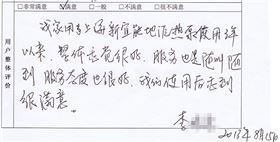 □非常满意 □满意 □一般 □不满意 □很不满意
用户整体评价
我家用了上海新宜能地泥热泵使用3年
以来,整体感觉很好,服务也是随叫随
到,服务态度也很好,我们使用后感到
很满意。
李
2013年8月15日